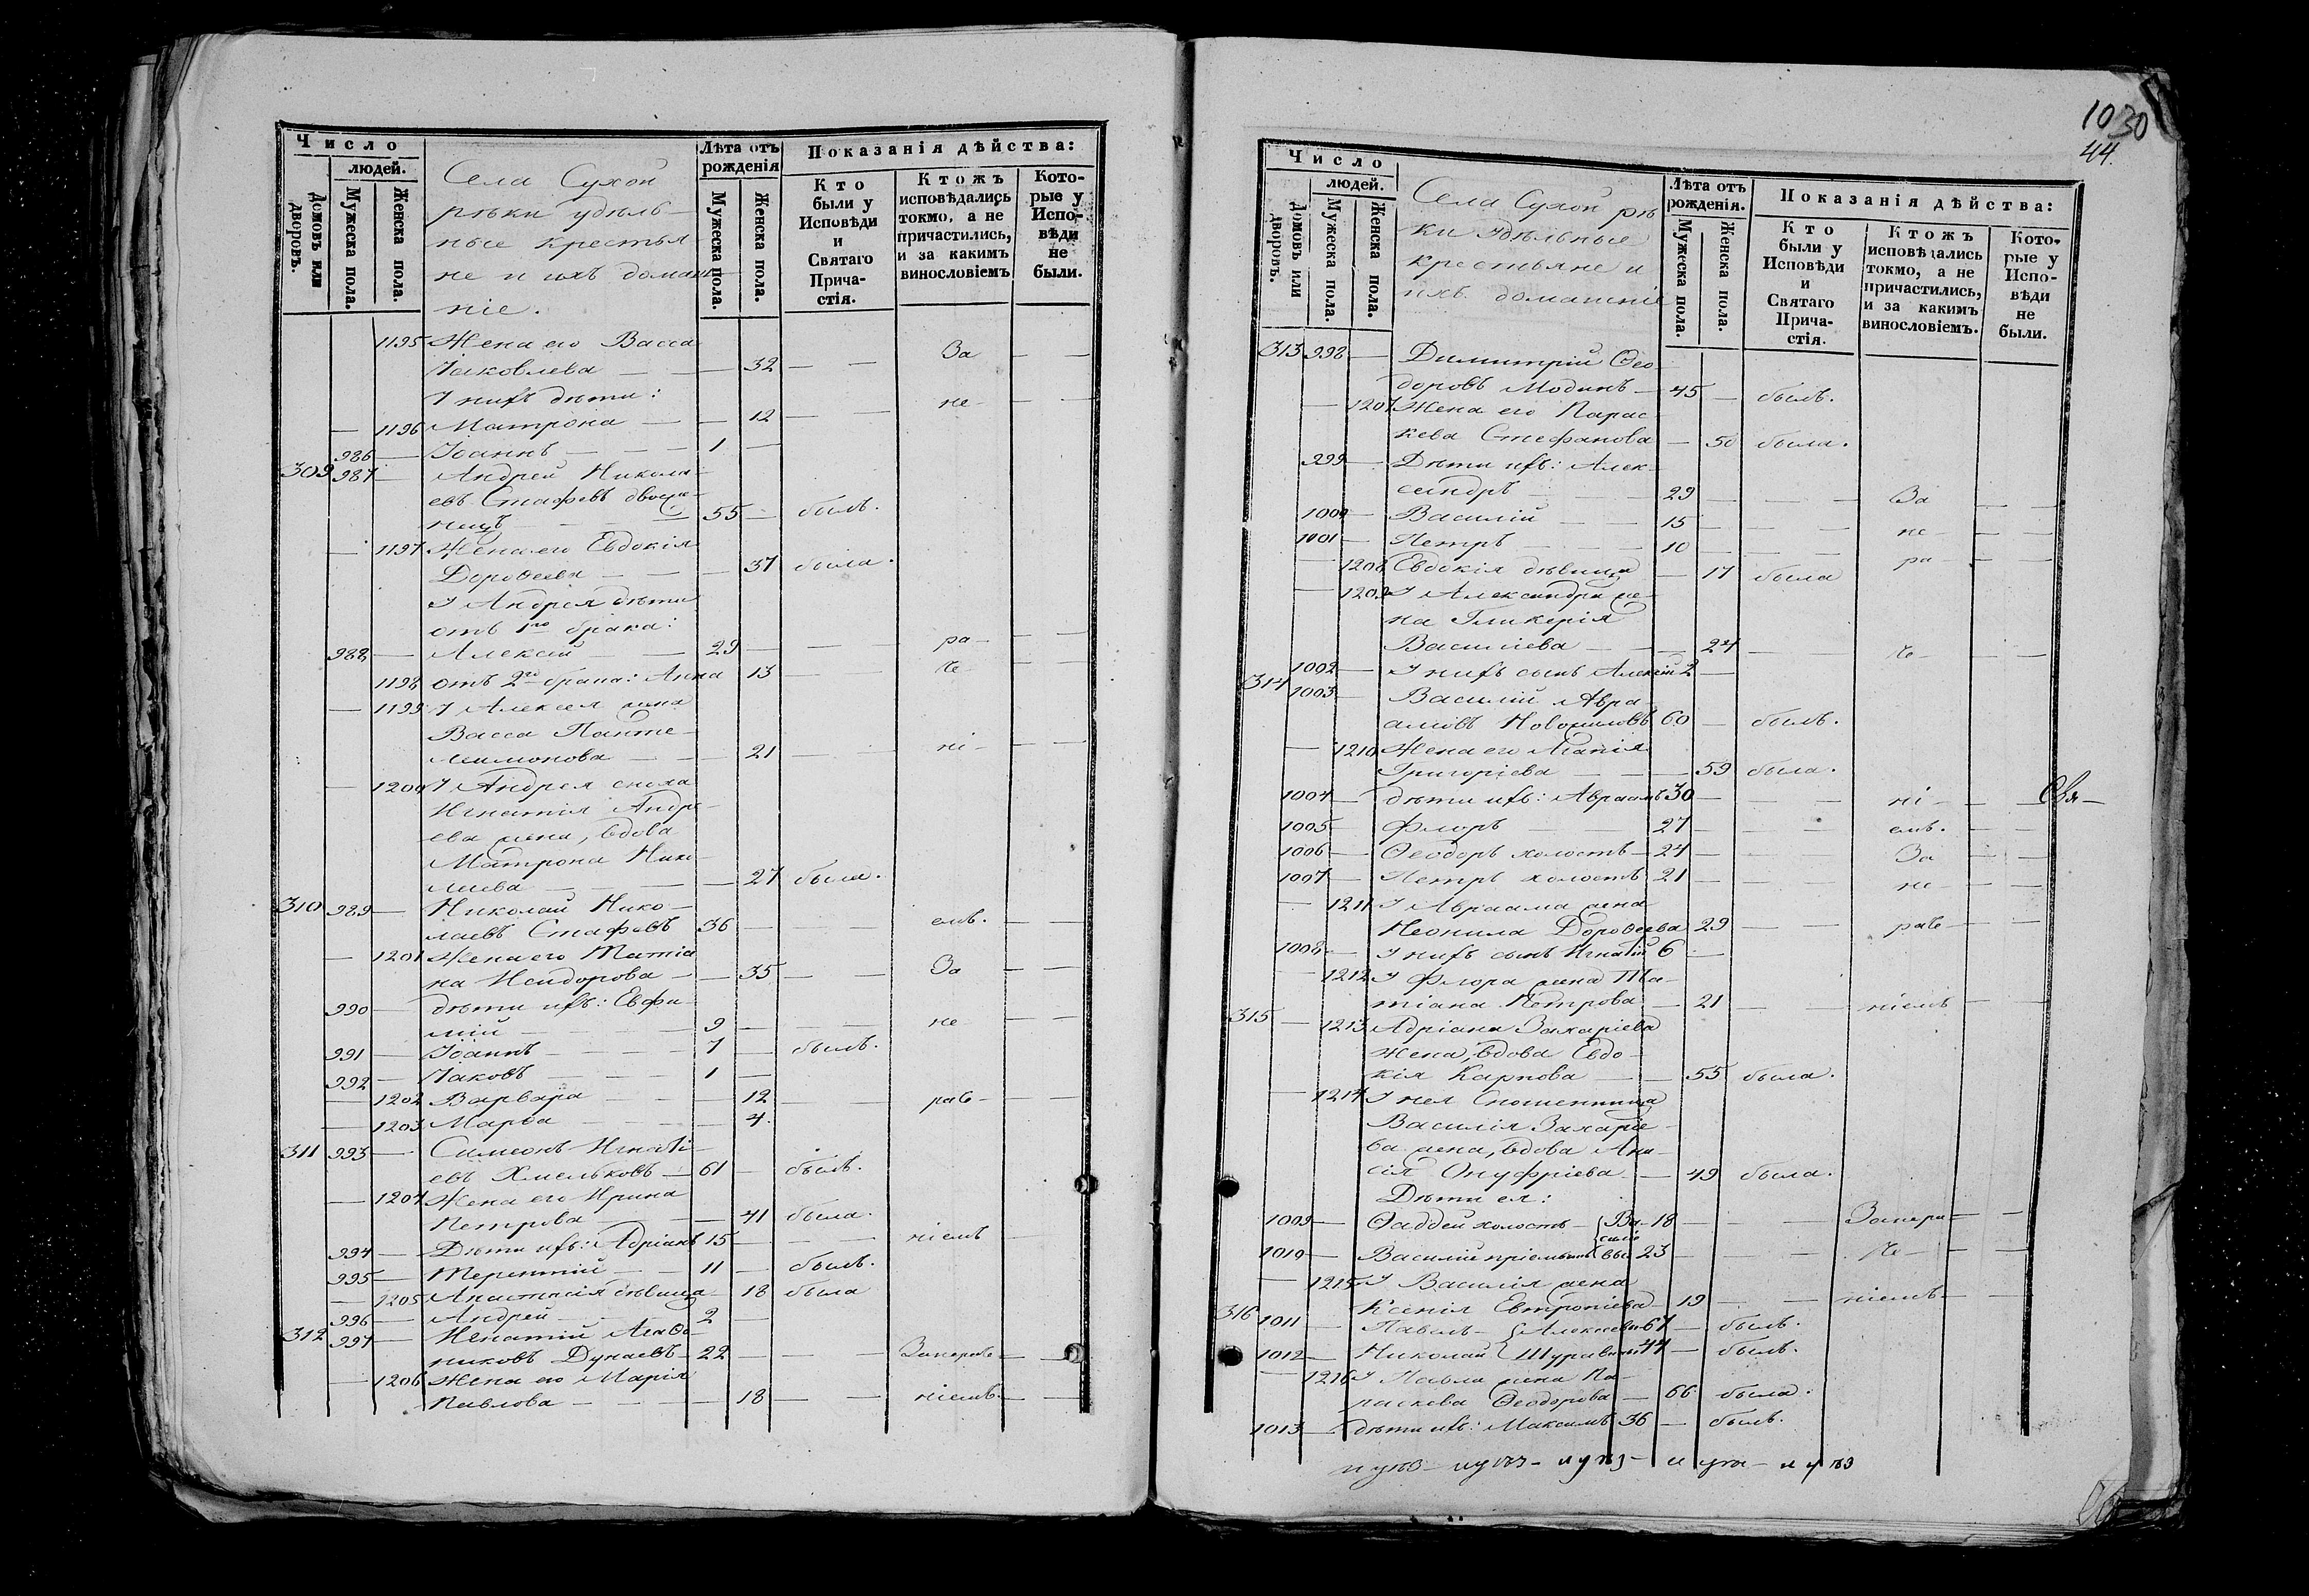 Число
людей.
Домовъ или дворовъ.
Мужеска пола.
Женска пола.
Села Сухой
рѣки удѣль-
ные крестья-
не и ихъ домаш-
ніе.
Лѣта отъ рожденія
Мужеска пола.
Женска пола.
Показанія дѣйства:
Кто были у Исповѣди и Святаго Прича-стія.
Ктожъ исповѣдались токмо, а не причастились, и за какимъ винословіемъ
Кото-рые у Испо-вѣди не были.
1195 Жена его Васса За
Іаковлева — 32 —
У нихъ дѣти: не
— 1196 Матрона — 12 —
986 — Іоаннъ — 1 —
309 987 — Андрей Никола-
евъ
нецъ — 55 — былъ.
— 1197 Жена его Евдокія
Дороѳеева — 37 была.
У Андрея дѣти
отъ 1го брака:
988 — Алексій — 29 — ра-
1198 отъ 2го брака: Анна 13 — че-
— 1199 У Алексея жена
Васса Панте-
леимонова — 21 — ні-
— 1200 У Андрея сына
Игнатія Андре-
ева жена, вдова
Матрона Нико-
лаева — 27 была.
310 989 — Николай Нико-
лаевъ 36 — емъ.
— 1201 Жена его Татіа
на Исидорова — 35 — За
990 — дѣти ихъ: Евфи-
мій — 9 — не
991 — Іоаннъ — 7 — былъ.
992 — Іаковъ — 1 —
— 1202 Варвара — 12 — раче-
— 1203 Марѳа — 4.
311 993 — Симеонъ Игнаті-
евъ Хмельковъ — 61 — былъ.
— 1204 Жена его Ирина
Петрова — 41 была.
994 — Дѣти ихъ: Адріанъ 15 — ніемъ
995 — Терентій — 11 — былъ.
— 1205 Анастасія дѣвица 18 была
996 — Андрей — 2 —
312 997 — Игнатій Агаѳо-
никовъ Дунаевъ 22 — Занераче-
— 1206 Жена его Марія
Павлова — 18 — ніемъ.
1030
44.
Число
людей.
Домовъ или дворовъ.
Мужеска пола.
Женска пола.
Села Сухой рѣ
ки удѣльные
крестьяне и
ихъ домашніе
Лѣта отъ рожденія.
Мужеска пола.
Женска пола.
Показанія дѣйства:
Кто были у Исповѣди и Святаго Прича-стія.
Ктожъ исповѣдались токмо, а не причастились, и за какимъ винословіемъ.
Кото-рые у Испо-вѣди не были.
313 998 — Димитрій Ѳео-
доровъ Модинъ — 45 — былъ.
— 1207 Жена его Парас-
кева Стефанова — 50 была.
999 — Дѣти ихъ: Алек-
сандръ — 29 — За
1000 — Василій — 15 — не
1001 — Петръ — 10 — ра-
— 1208 Евдокія дѣвица — 17 была
— 1209 У Александра же-
на Гликерія
Василіева — 24 — че-
1002 — У нихъ сынъ Алексій 2 —
314 1003 — Василій Авра-
амовъ 60 — былъ.
— 1210 Жена его Агапія
Григоріева — 59 была.
1004 — дѣти ихъ: Авраамъ 30 — ні-
1005 — Флоръ — 27 — емъ.
1006 — Ѳеодоръ холостъ — 24 — За
1007 — Петръ холостъ 21 — не-
— 1211 У Авраама жена
Неонила Дороѳеева 29 — раче-
1008 — У нихъ сынъ Игнатій 6 —
— 1212 У Флора жена Та-
тіана Петрова — 21 — ніемъ
315 — 1213 Адріана Захаріева
жена, вдова Евдо-
кія Карпова — 55 была.
— 1214 У нея Сношенница
Василія Захаріе-
ва жена, вдова Ани-
сія Онуфріева — 49 была.
Дѣти ея:
1009 — Ѳаддей холостъ — { Ва- 18 — Занера-
силіе
1010 — Василій пріемышъ { вы 23 — че-
— 1215 У Василія жена
Ксенія Евтропіева — 19 — ніемъ
316 1011 — Павелъ — { Алексѣевы 67 — былъ.
1012 — Николай { 44 — былъ.
— 1216 У Павла жена Па-
раскева Ѳеодорова — 66 была.
1013 — дѣти ихъ: Максимъ 36 — былъ.